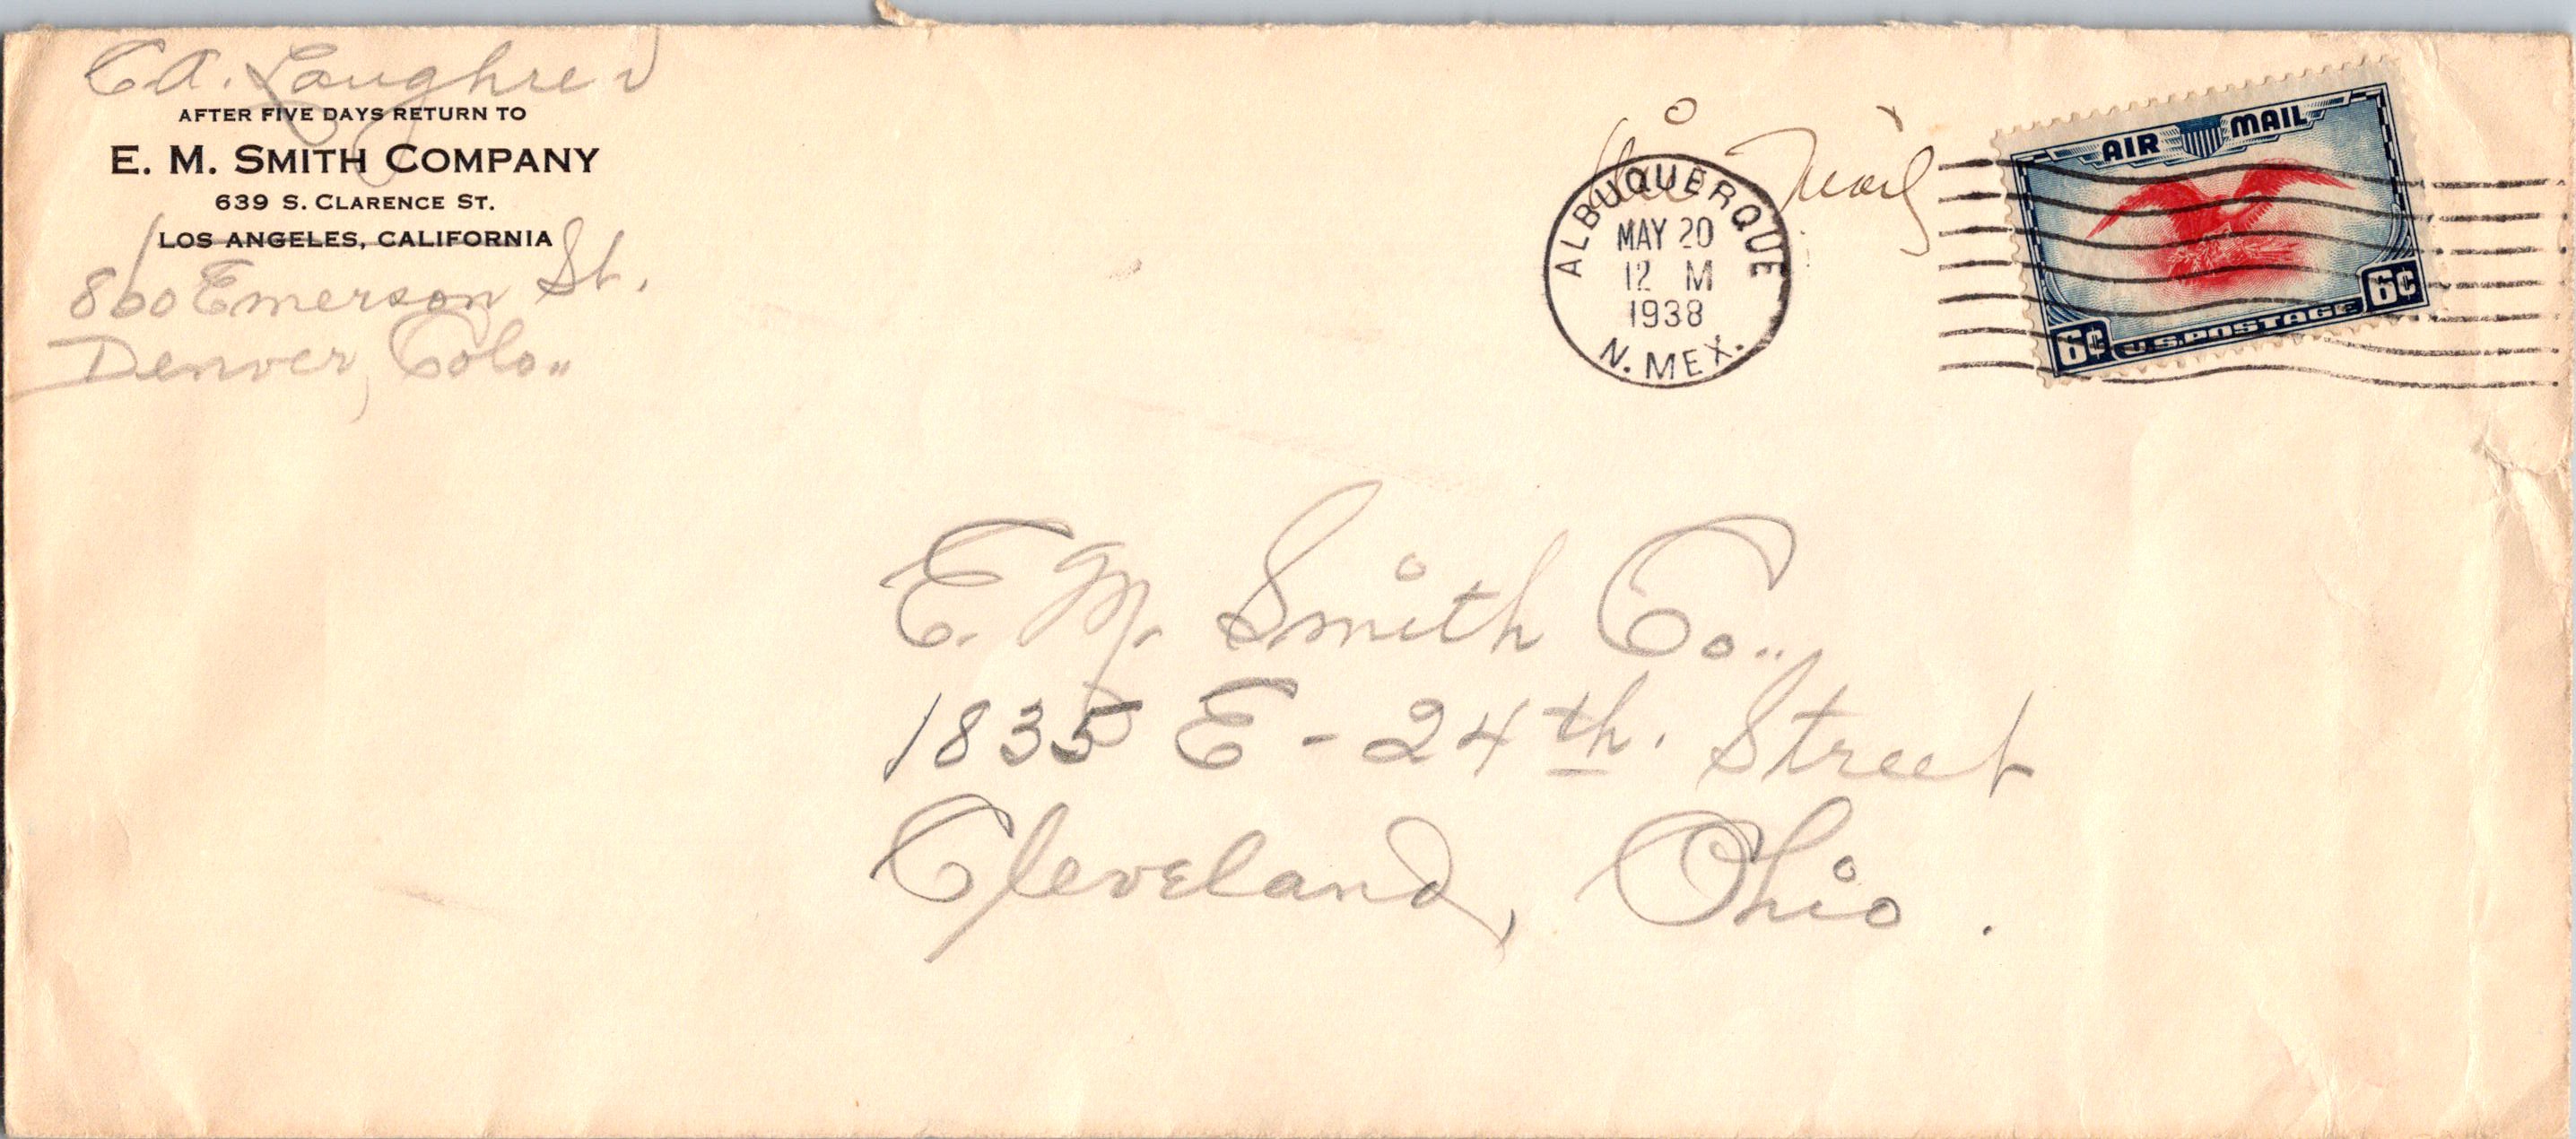 C.A. Loughred
AFTER FIVE DAYS RETURN TO
E. M. SMITH COMPANY
639 S. CLARENCE ST.
LOS ANGELES, CALIFORNIA
860 Emerson St.
Denver, Colo..
Air Mail
ALBUQUERQUE
MAY 20
12 M
1938
N. MEX.
AIR MAIL
6¢ U.S. POSTAGE 6¢
E. M. Smith Co..
1835 E - 24th. Street
Cleveland, Ohio.